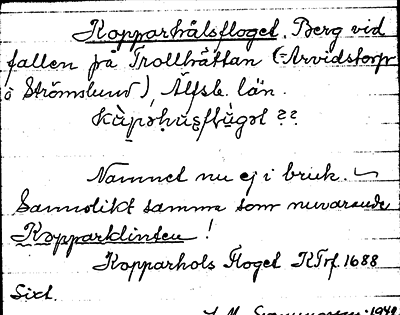 Kopparhålsfloget. Berg vid
fallen på Trollhättan (=Arvidstorp
å Strömslund), Älfsb. län.
Namnet nu ej i bruk.
Sannolikt samma som nuvarande
Kopparklinten!
Kopparhols Floget KTrf. 1688
Sixt.